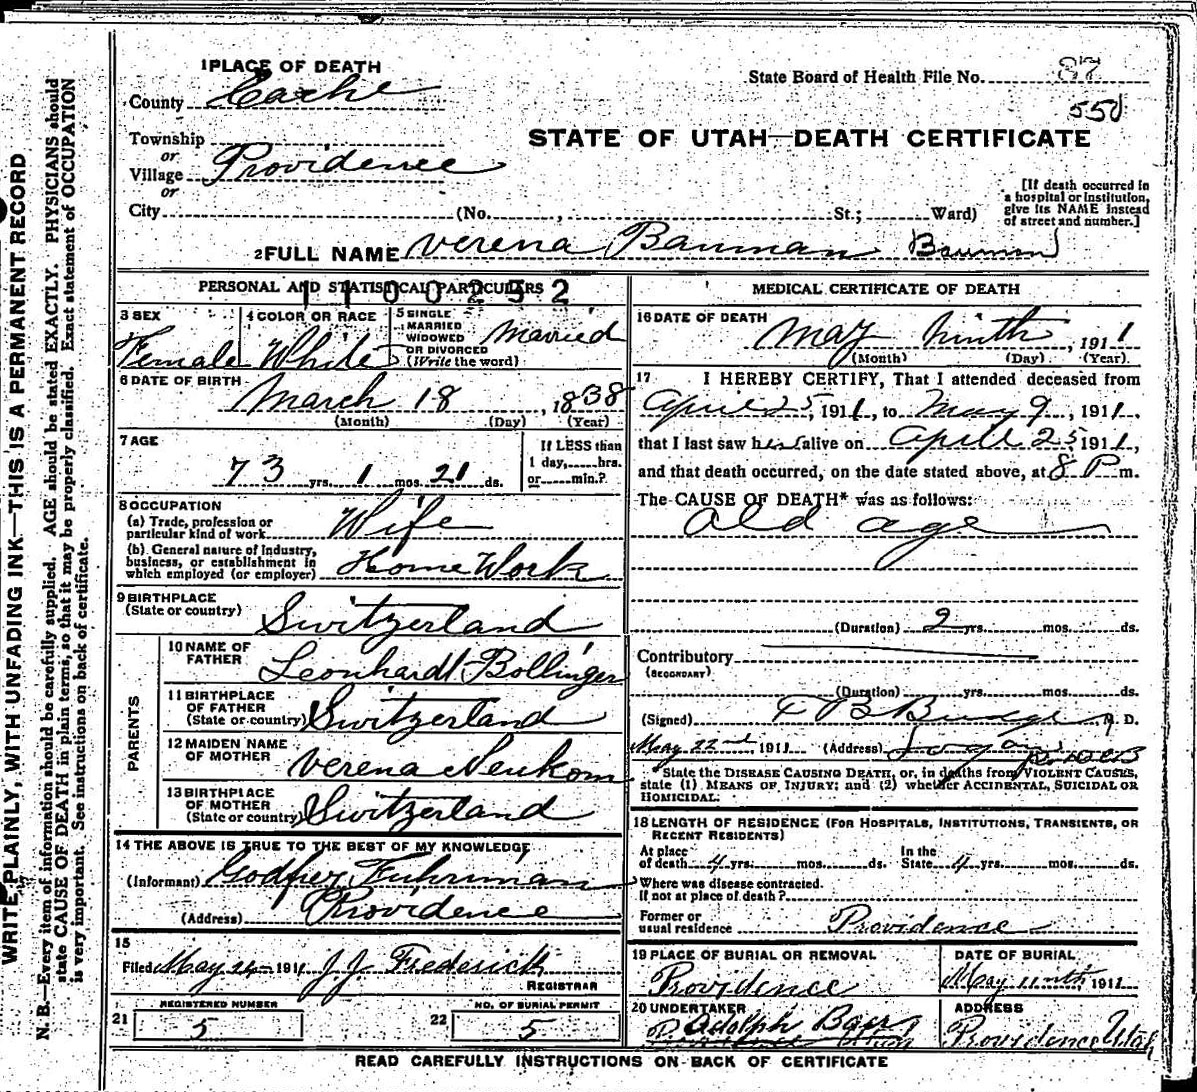 WRITE PLAINLY, WITH UNFADING INK—THIS IS A PERMANENT RECORD
N. B.—Every item of information should be carefully supplied. AGE should be stated EXACTLY. PHYSICIANS should
state CAUSE OF DEATH in plain terms, so that it may be properly classified. Exact statement of OCCUPATION
is very important. See instructions on back of certificate.
1 PLACE OF DEATH
County Cache
State Board of Health File No. 87
550
Township
or
Village Providence
or
STATE OF UTAH—DEATH CERTIFICATE
City (No. , St.; Ward)
[If death occurred in
a hospital or institution,
give its NAME instead
of street and number.]
2 FULL NAME Verena Bauman Bauman
PERSONAL AND STATISTICAL PARTICULARS
1100252
3 SEX
Female
4 COLOR OR RACE
White
5 SINGLE
MARRIED
WIDOWED
OR DIVORCED
(Write the word)
Married
6 DATE OF BIRTH
March 18, 1838
(Month) (Day) (Year)
7 AGE
73 yrs. 1 mos. 21 ds.
If LESS than
1 day, hrs.
or min.?
8 OCCUPATION
(a) Trade, profession or
particular kind of work Wife
(b) General nature of industry,
business, or establishment in
which employed (or employer) Home Work
9 BIRTHPLACE
(State or country) Switzerland
PARENTS
10 NAME OF
FATHER Leonhardt Bollinger
11 BIRTHPLACE
OF FATHER
(State or country) Switzerland
12 MAIDEN NAME
OF MOTHER Verena Neukom
13 BIRTHPLACE
OF MOTHER
(State or country) Switzerland
14 THE ABOVE IS TRUE TO THE BEST OF MY KNOWLEDGE
(Informant) Godfrey Fuhriman
(Address) Providence
15
Filed May 24 1911 J. J. Frederick
REGISTRAR
REGISTERED NUMBER
21 5
NO. OF BURIAL PERMIT
22 5
MEDICAL CERTIFICATE OF DEATH
16 DATE OF DEATH
May ninth, 1911
(Month) (Day) (Year)
17 I HEREBY CERTIFY, That I attended deceased from
April 25, 1911, to May 9, 1911,
that I last saw her alive on April 25 1911,
and that death occurred, on the date stated above, at 8 P m.
The CAUSE OF DEATH* was as follows:
Old age
(Duration) 2 yrs. mos. ds.
Contributory
(SECONDARY)
(Duration) yrs. mos. ds.
(Signed) D B Budge M. D.
May 22nd, 1911 (Address) Logan
State the DISEASE CAUSING DEATH, or, in deaths from VIOLENT CAUSES,
state (1) MEANS OF INJURY; and (2) whether ACCIDENTAL, SUICIDAL OR
HOMICIDAL.
18 LENGTH OF RESIDENCE (FOR HOSPITALS, INSTITUTIONS, TRANSIENTS, OR
RECENT RESIDENTS)
At place
of death 4 yrs. mos. ds.
In the
State 4 yrs. mos. ds.
Where was disease contracted.
If not at place of death?
Former or
usual residence Providence
19 PLACE OF BURIAL OR REMOVAL
Providence
DATE OF BURIAL
May 11nth, 1911
20 UNDERTAKER
Adolph Baer
ADDRESS
Providence Utah
READ CAREFULLY INSTRUCTIONS ON BACK OF CERTIFICATE